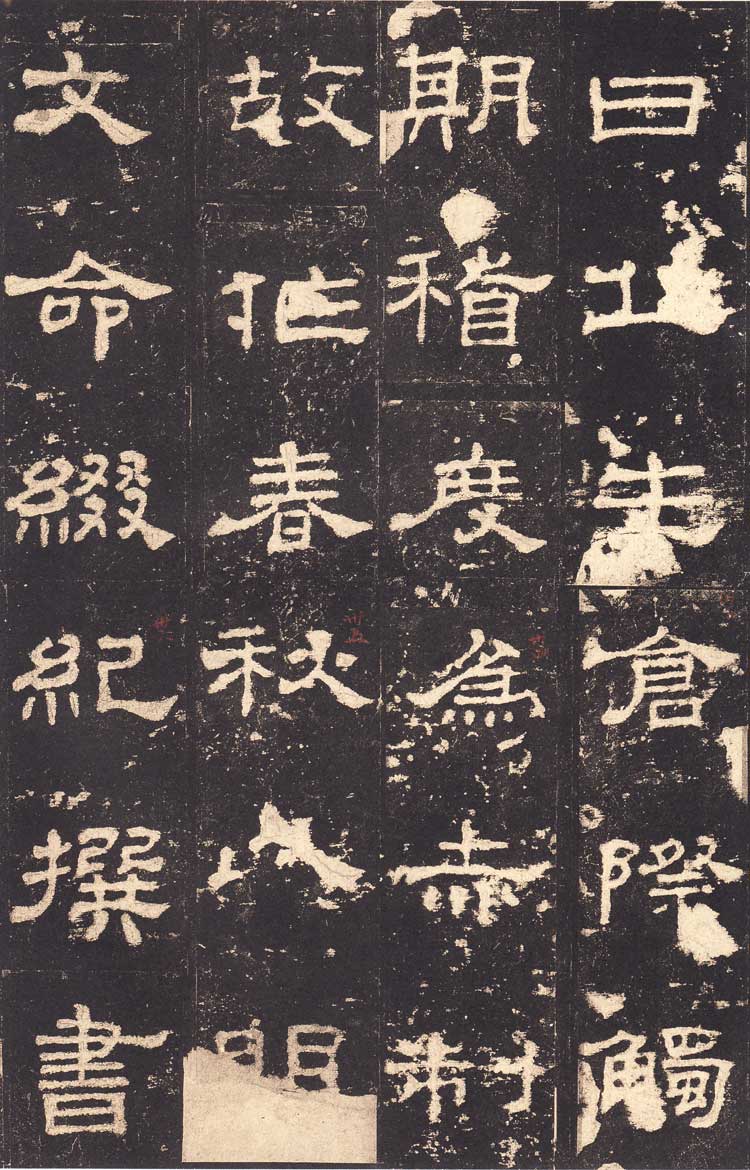 曰丘生倉際觸
期稽度爲赤制
故作春秋以明
文命綴紀撰書